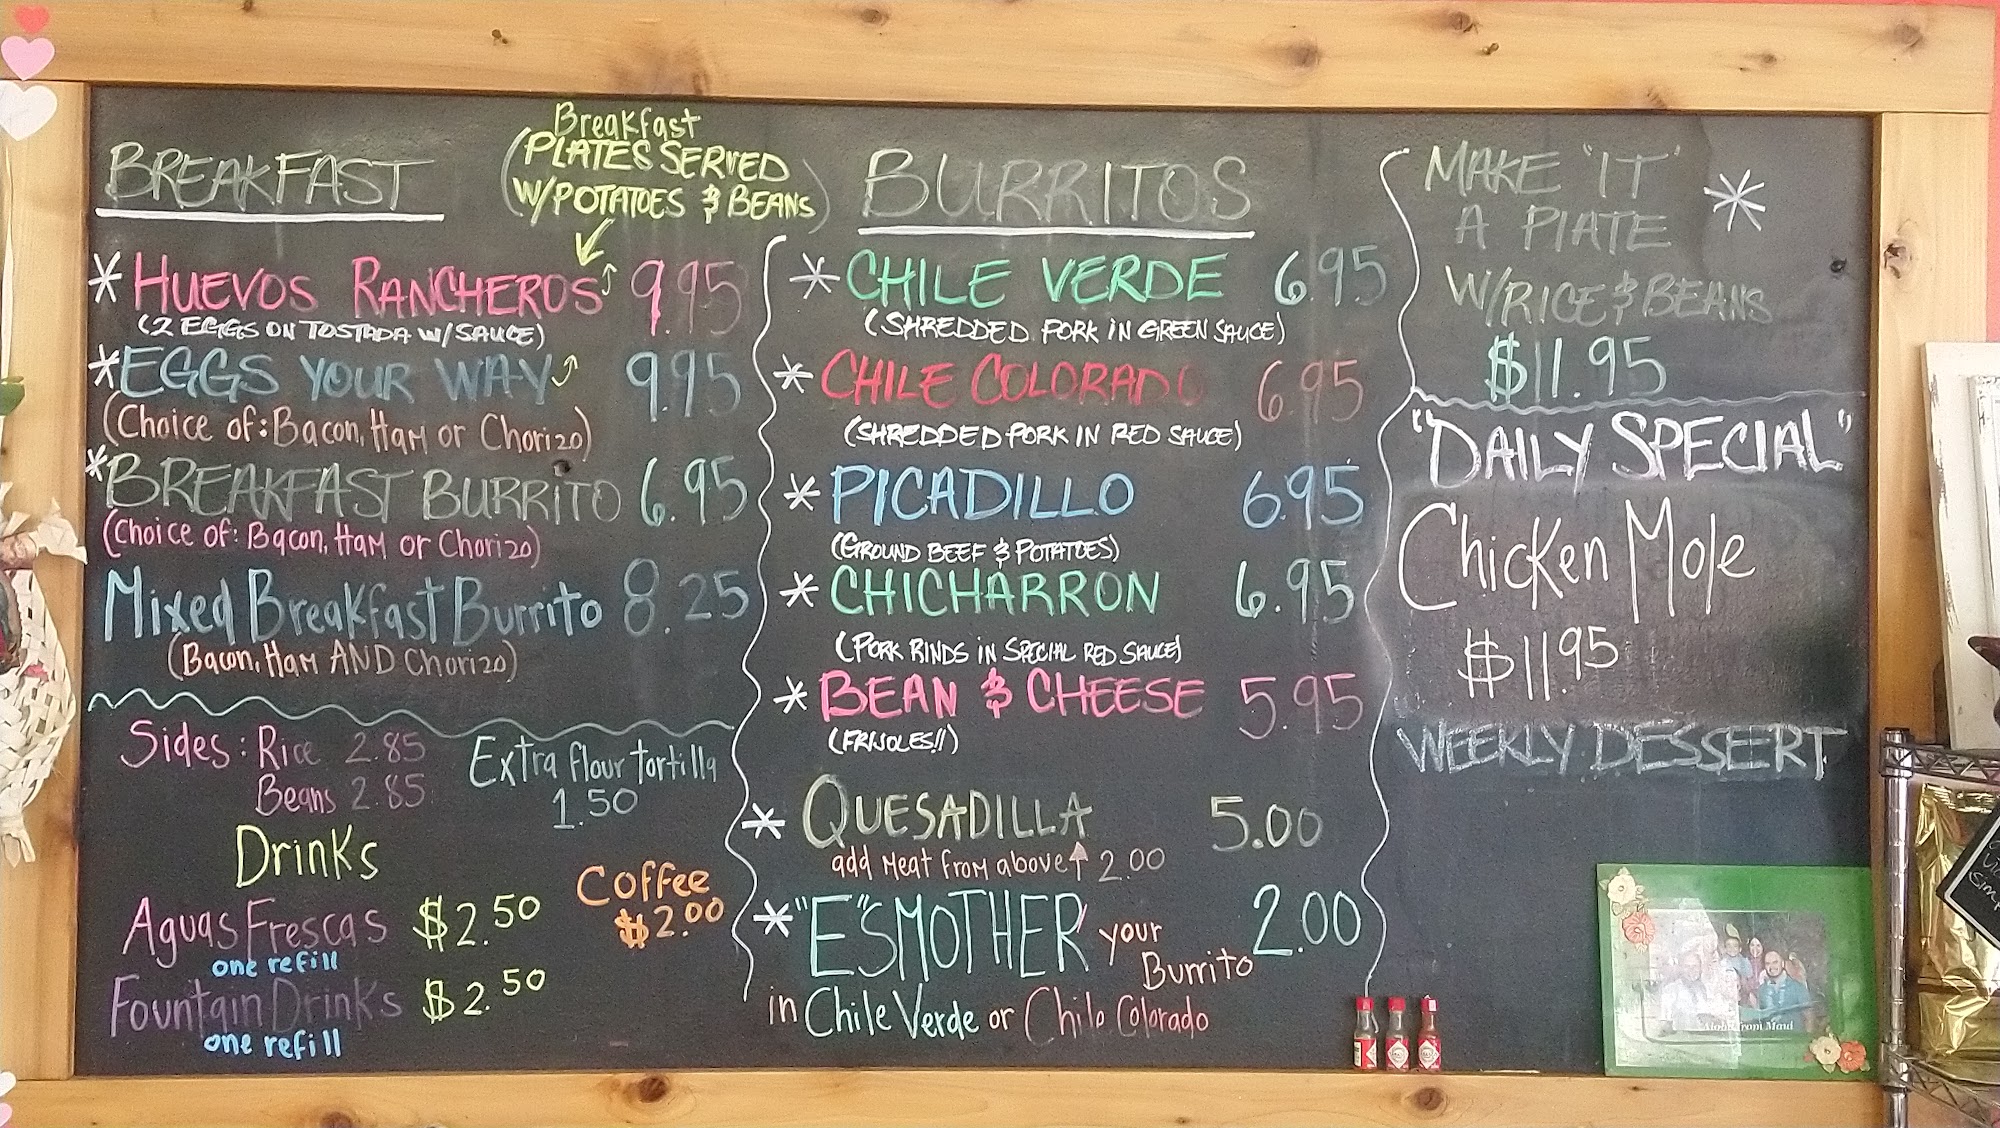 BREAKFAST
Breakfast
(PLATES SERVED
W/POTATOES & BEANS)
*HUEVOS RANCHEROS 9.95
(2 EGGS ON TOSTADA W/SAUCE)
*EGGS YOUR WAY 9.95
(Choice of: Bacon, Ham or Chorizo)
*BREAKFAST BURRITO 6.95
(Choice of: Bacon, Ham or Chorizo)
Mixed Breakfast Burrito 8.25
(Bacon, Ham AND Chorizo)
Sides: Rice 2.85
Beans 2.85
Extra flour tortilla
1.50
Drinks
Aguas Frescas $2.50
one refill
Fountain Drinks $2.50
one refill
Coffee
$2.00
BURRITOS
*CHILE VERDE 6.95
(SHREDDED PORK IN GREEN SAUCE)
*CHILE COLORADO 6.95
(SHREDDED PORK IN RED SAUCE)
*PICADILLO 6.95
(GROUND BEEF & POTATOES)
*CHICHARRON 6.95
(PORK RINDS IN SPECIAL RED SAUCE)
*BEAN & CHEESE 5.95
(FRIJOLES!!)
*QUESADILLA 5.00
add Meat from above 2.00
*"E"SMOTHER your Burrito 2.00
in Chile Verde or Chile Colorado
MAKE 'IT' *
A PLATE
W/RICE & BEANS
$11.95
"DAILY SPECIAL"
Chicken Mole
$11.95
WEEKLY DESSERT
Aloha from Maui